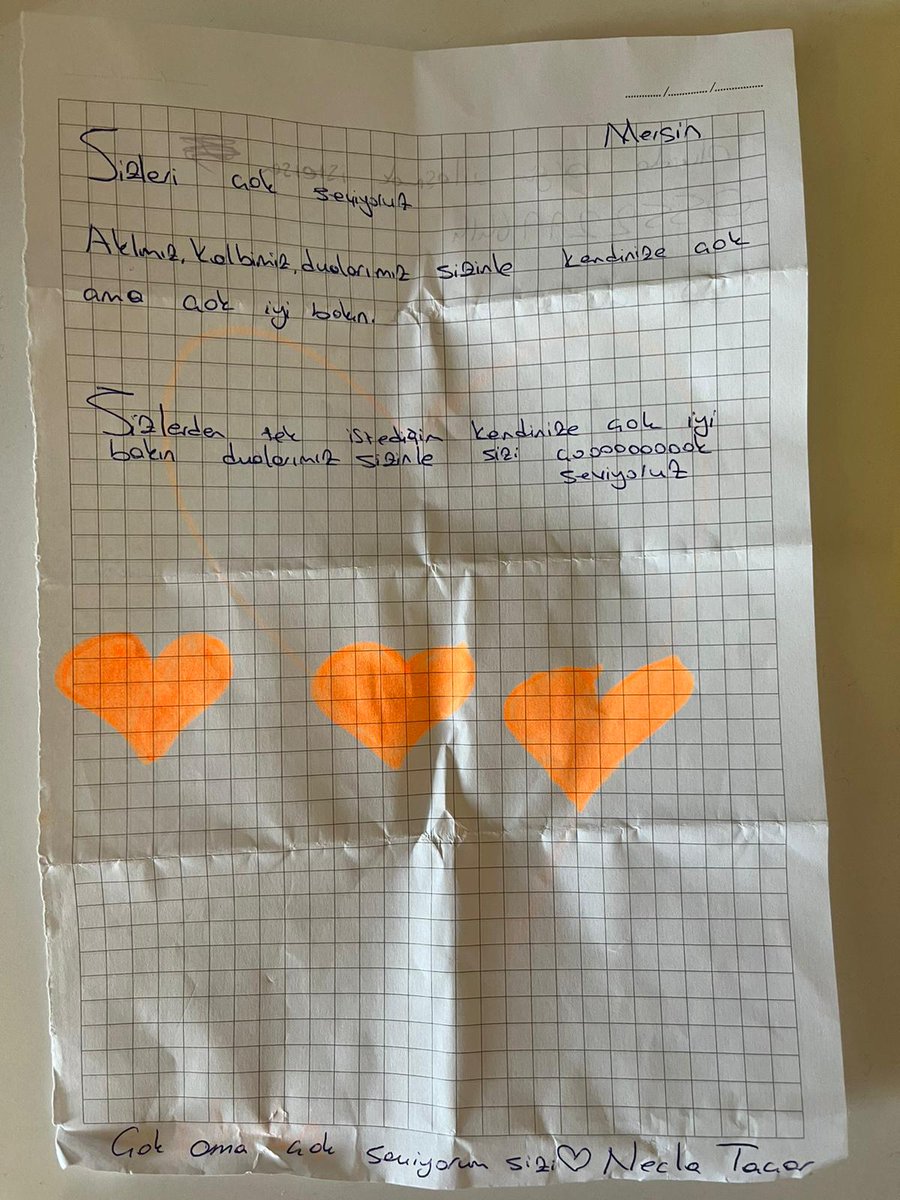 ............/............/...............
Mersin
Sizleri çok seviyoruz
Aklımız, kalbimiz, dualarımız sizinle kendinize çok
ama çok iyi bakın.
Sizlerden tek istediğim kendinize çok iyi
bakın dualarımız sizinle sizi çooooooooook
seviyoruz
Çok ama çok seviyorum sizi♡ Necla Taçar